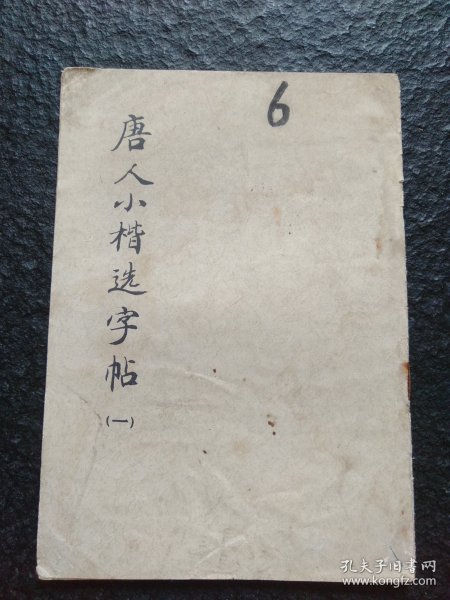 6
唐人小楷选字帖
(一)
孔夫子旧书网
www.kongfz.com